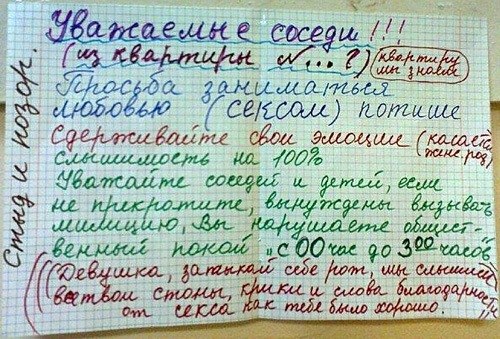 Уважаемые соседи!!!
(из квартиры №...?) (квартиру мы знаем)
Просьба заниматься
любовью (сексом) потише
Сдерживайте свои эмоции (касается женс. род)
слышимость на 100%
Уважайте соседей и детей, если
не прекратите, вынуждены вызывать
милицию, Вы нарушаете общест-
венный покой „с 00 час до 3 00 часов"
((Девушка, затыкай себе рот, мы слышим
все твои стоны, крики и слова благодарности
от секса как тебе было хорошо.
Стыд и позор.